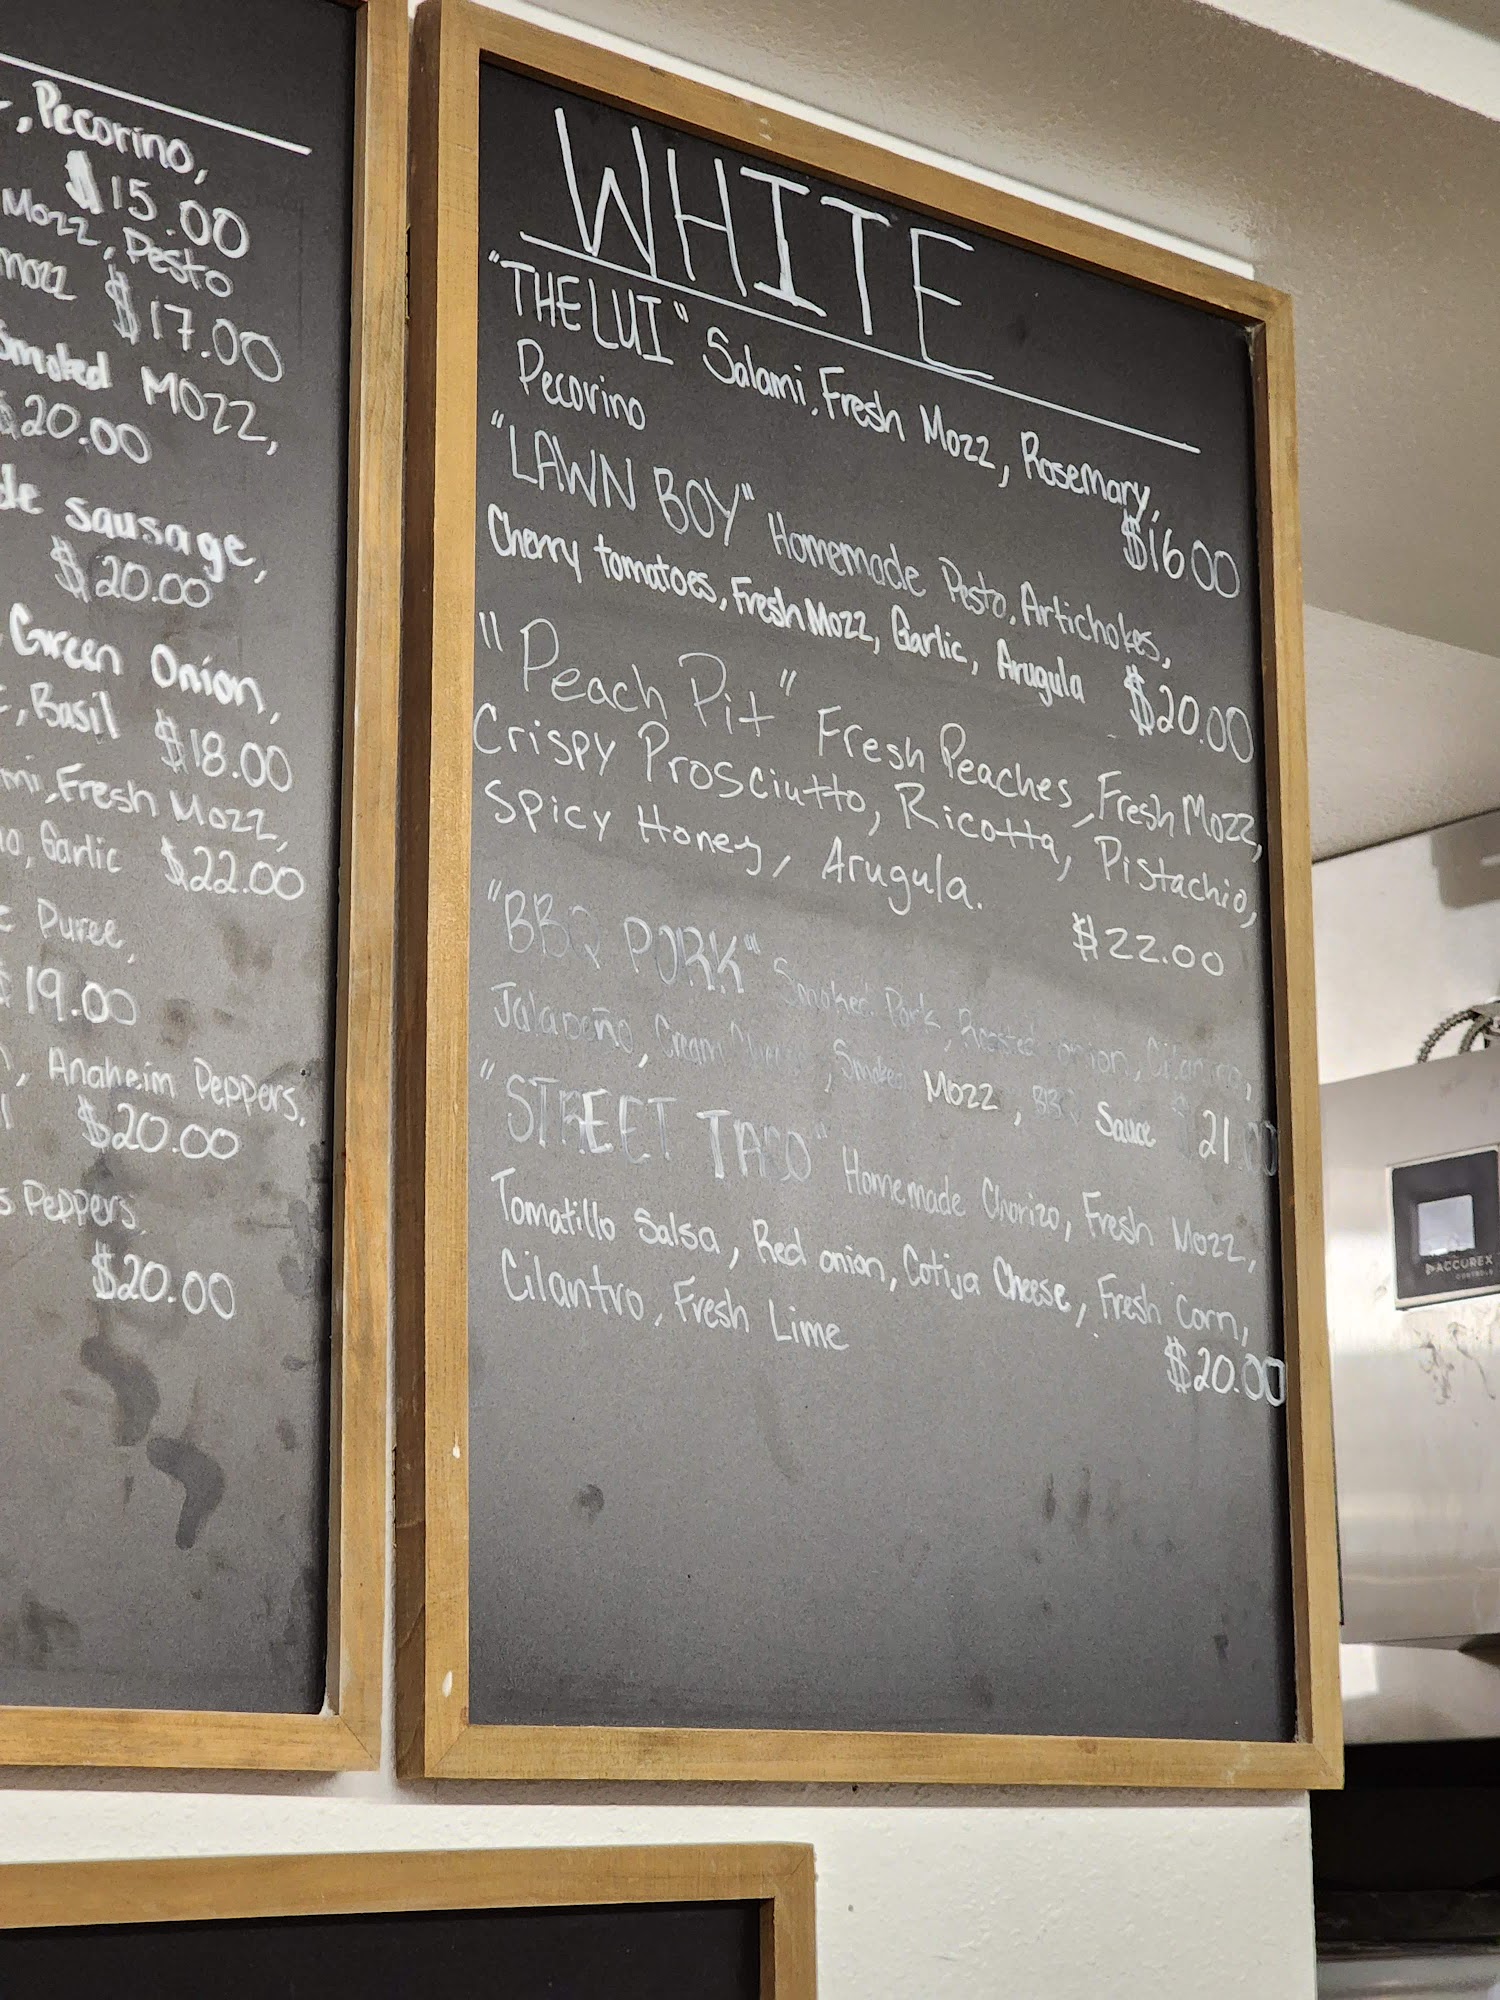 , Pecorino,
$15.00
Mozz, Pesto
mozz $17.00
Smoked Mozz,
$20.00
sausage,
$20.00
Green Onion,
, Basil $18.00
, Fresh Mozz,
, Garlic $22.00
Puree,
$19.00
, Anaheim Peppers,
$20.00
Peppers,
$20.00
WHITE
"THE LUI" Salami, Fresh Mozz, Rosemary,
Pecorino $16.00
"LAWN BOY" Homemade Pesto, Artichokes,
Cherry tomatoes, Fresh Mozz, Garlic, Arugula $20.00
"Peach Pit" Fresh Peaches, Fresh Mozz,
Crispy Prosciutto, Ricotta, Pistachio,
Spicy Honey, Arugula.
$22.00
"BBQ PORK" Smoked Pork, Roasted onion, Cilantro,
Jalapeño, Cream , Smoked Mozz, BBQ Sauce 21.00
"STREET TACO" Homemade Chorizo, Fresh Mozz,
Tomatillo Salsa, Red onion, Cotija Cheese, Fresh Corn,
Cilantro, Fresh Lime
$20.00
ACCUREX
CONTROLS